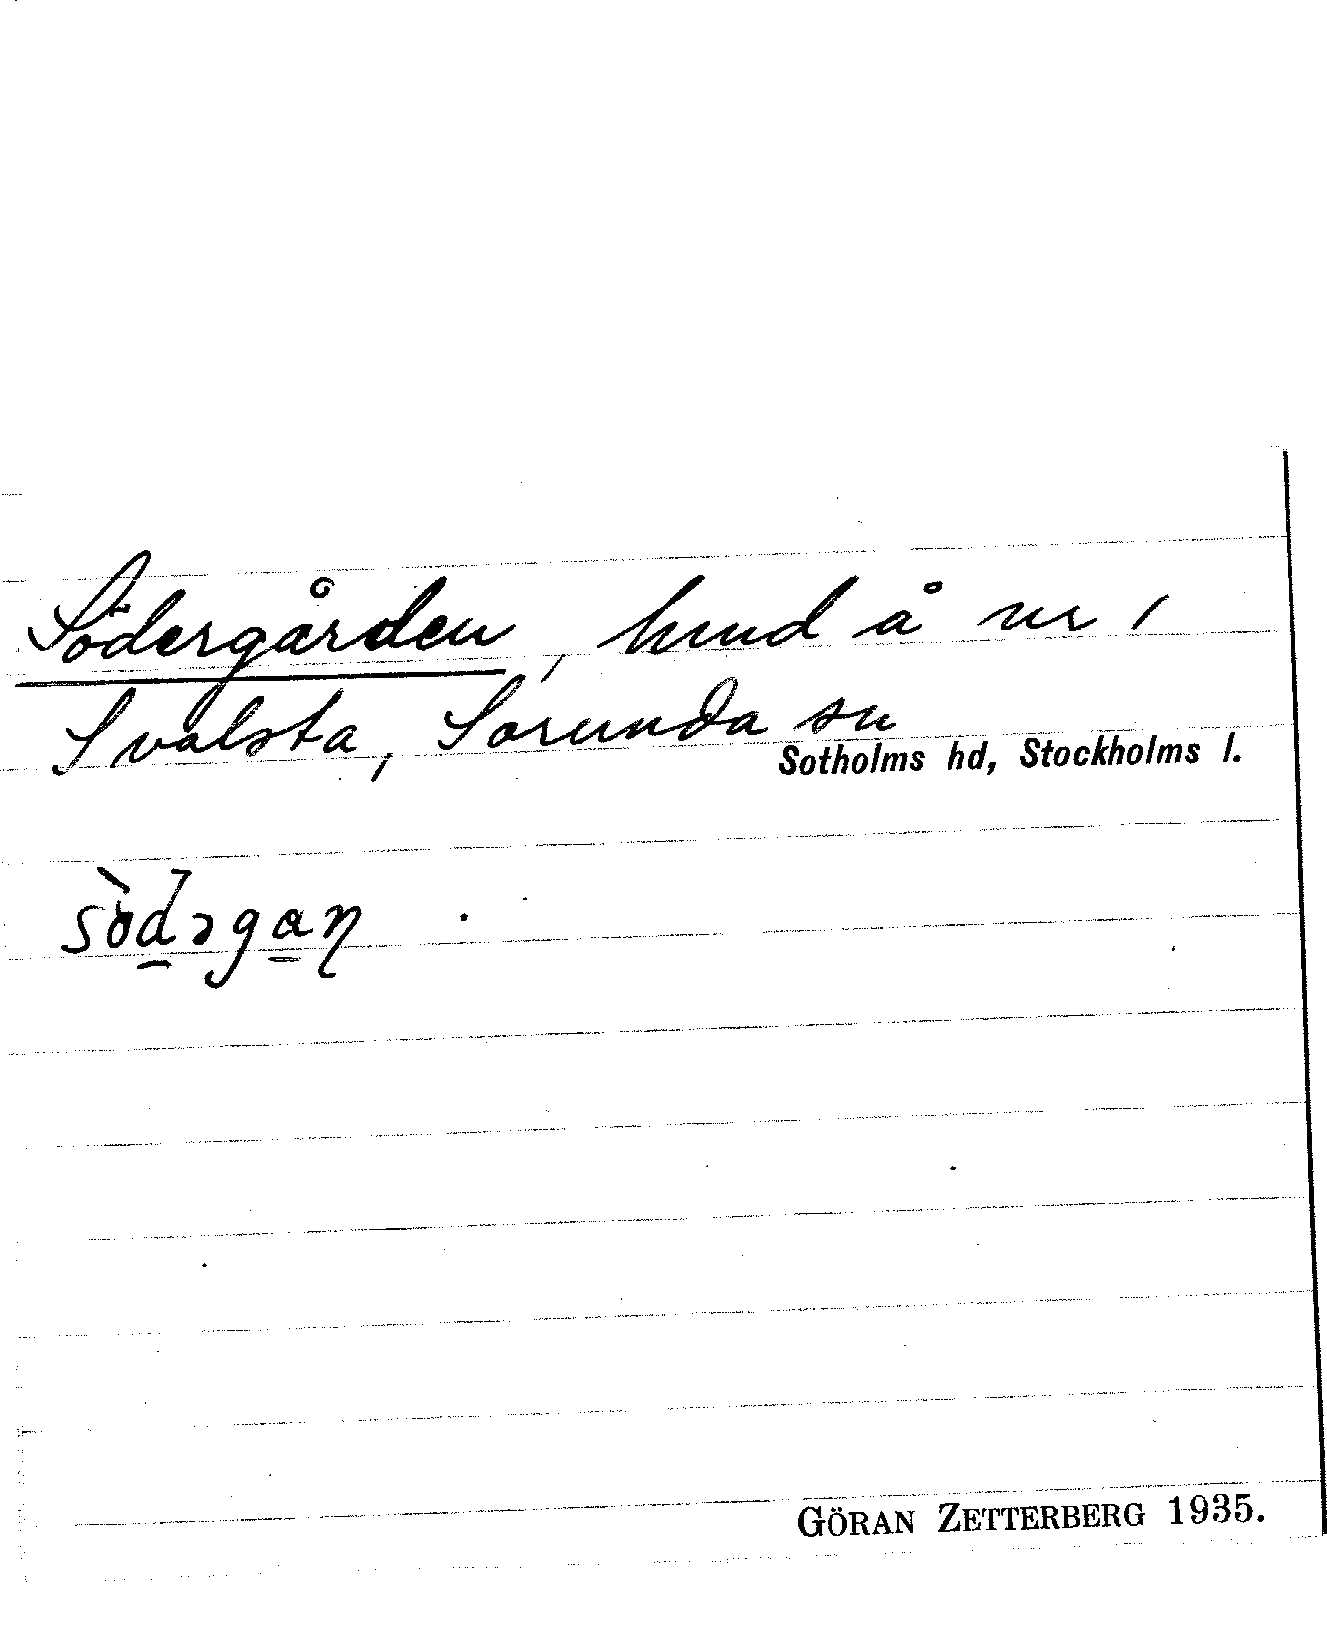 Södergården, hmd å nr 1
Svalsta, Sorunda sn
Sotholms hd, Stockholms l.
sö̀dəgaɳ
GÖRAN ZETTERBERG 1935.